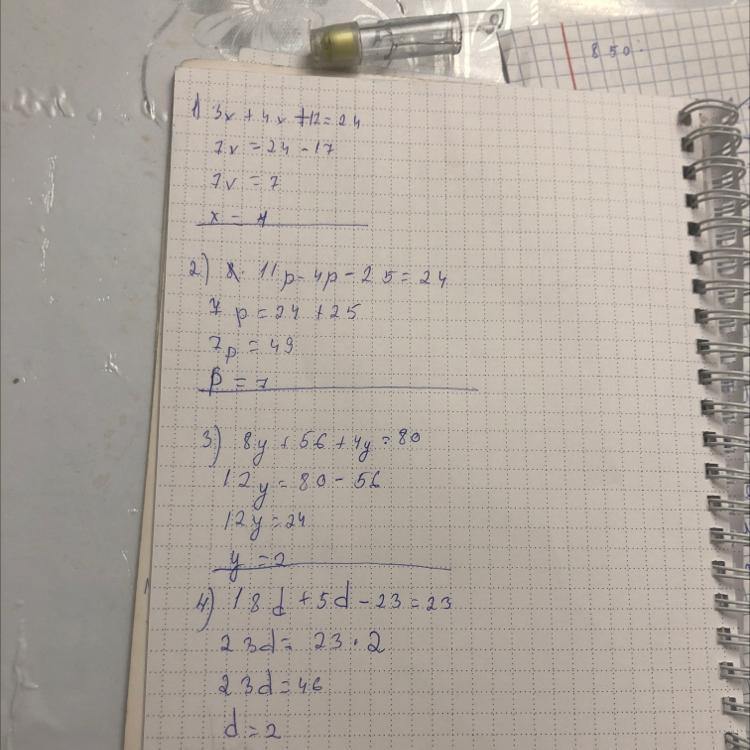 850.
1) 3x + 4x + 17 = 24
7x = 24 - 17
7x = 7
x = 1
2) 11p - 4p - 25 = 24
7p = 24 + 25
7p = 49
p = 7
3) 8y + 56 + 4y = 80
12y = 80 - 56
12y = 24
y = 2
4) 18d + 5d - 23 = 23
23d = 23 · 2
23d = 46
d = 2